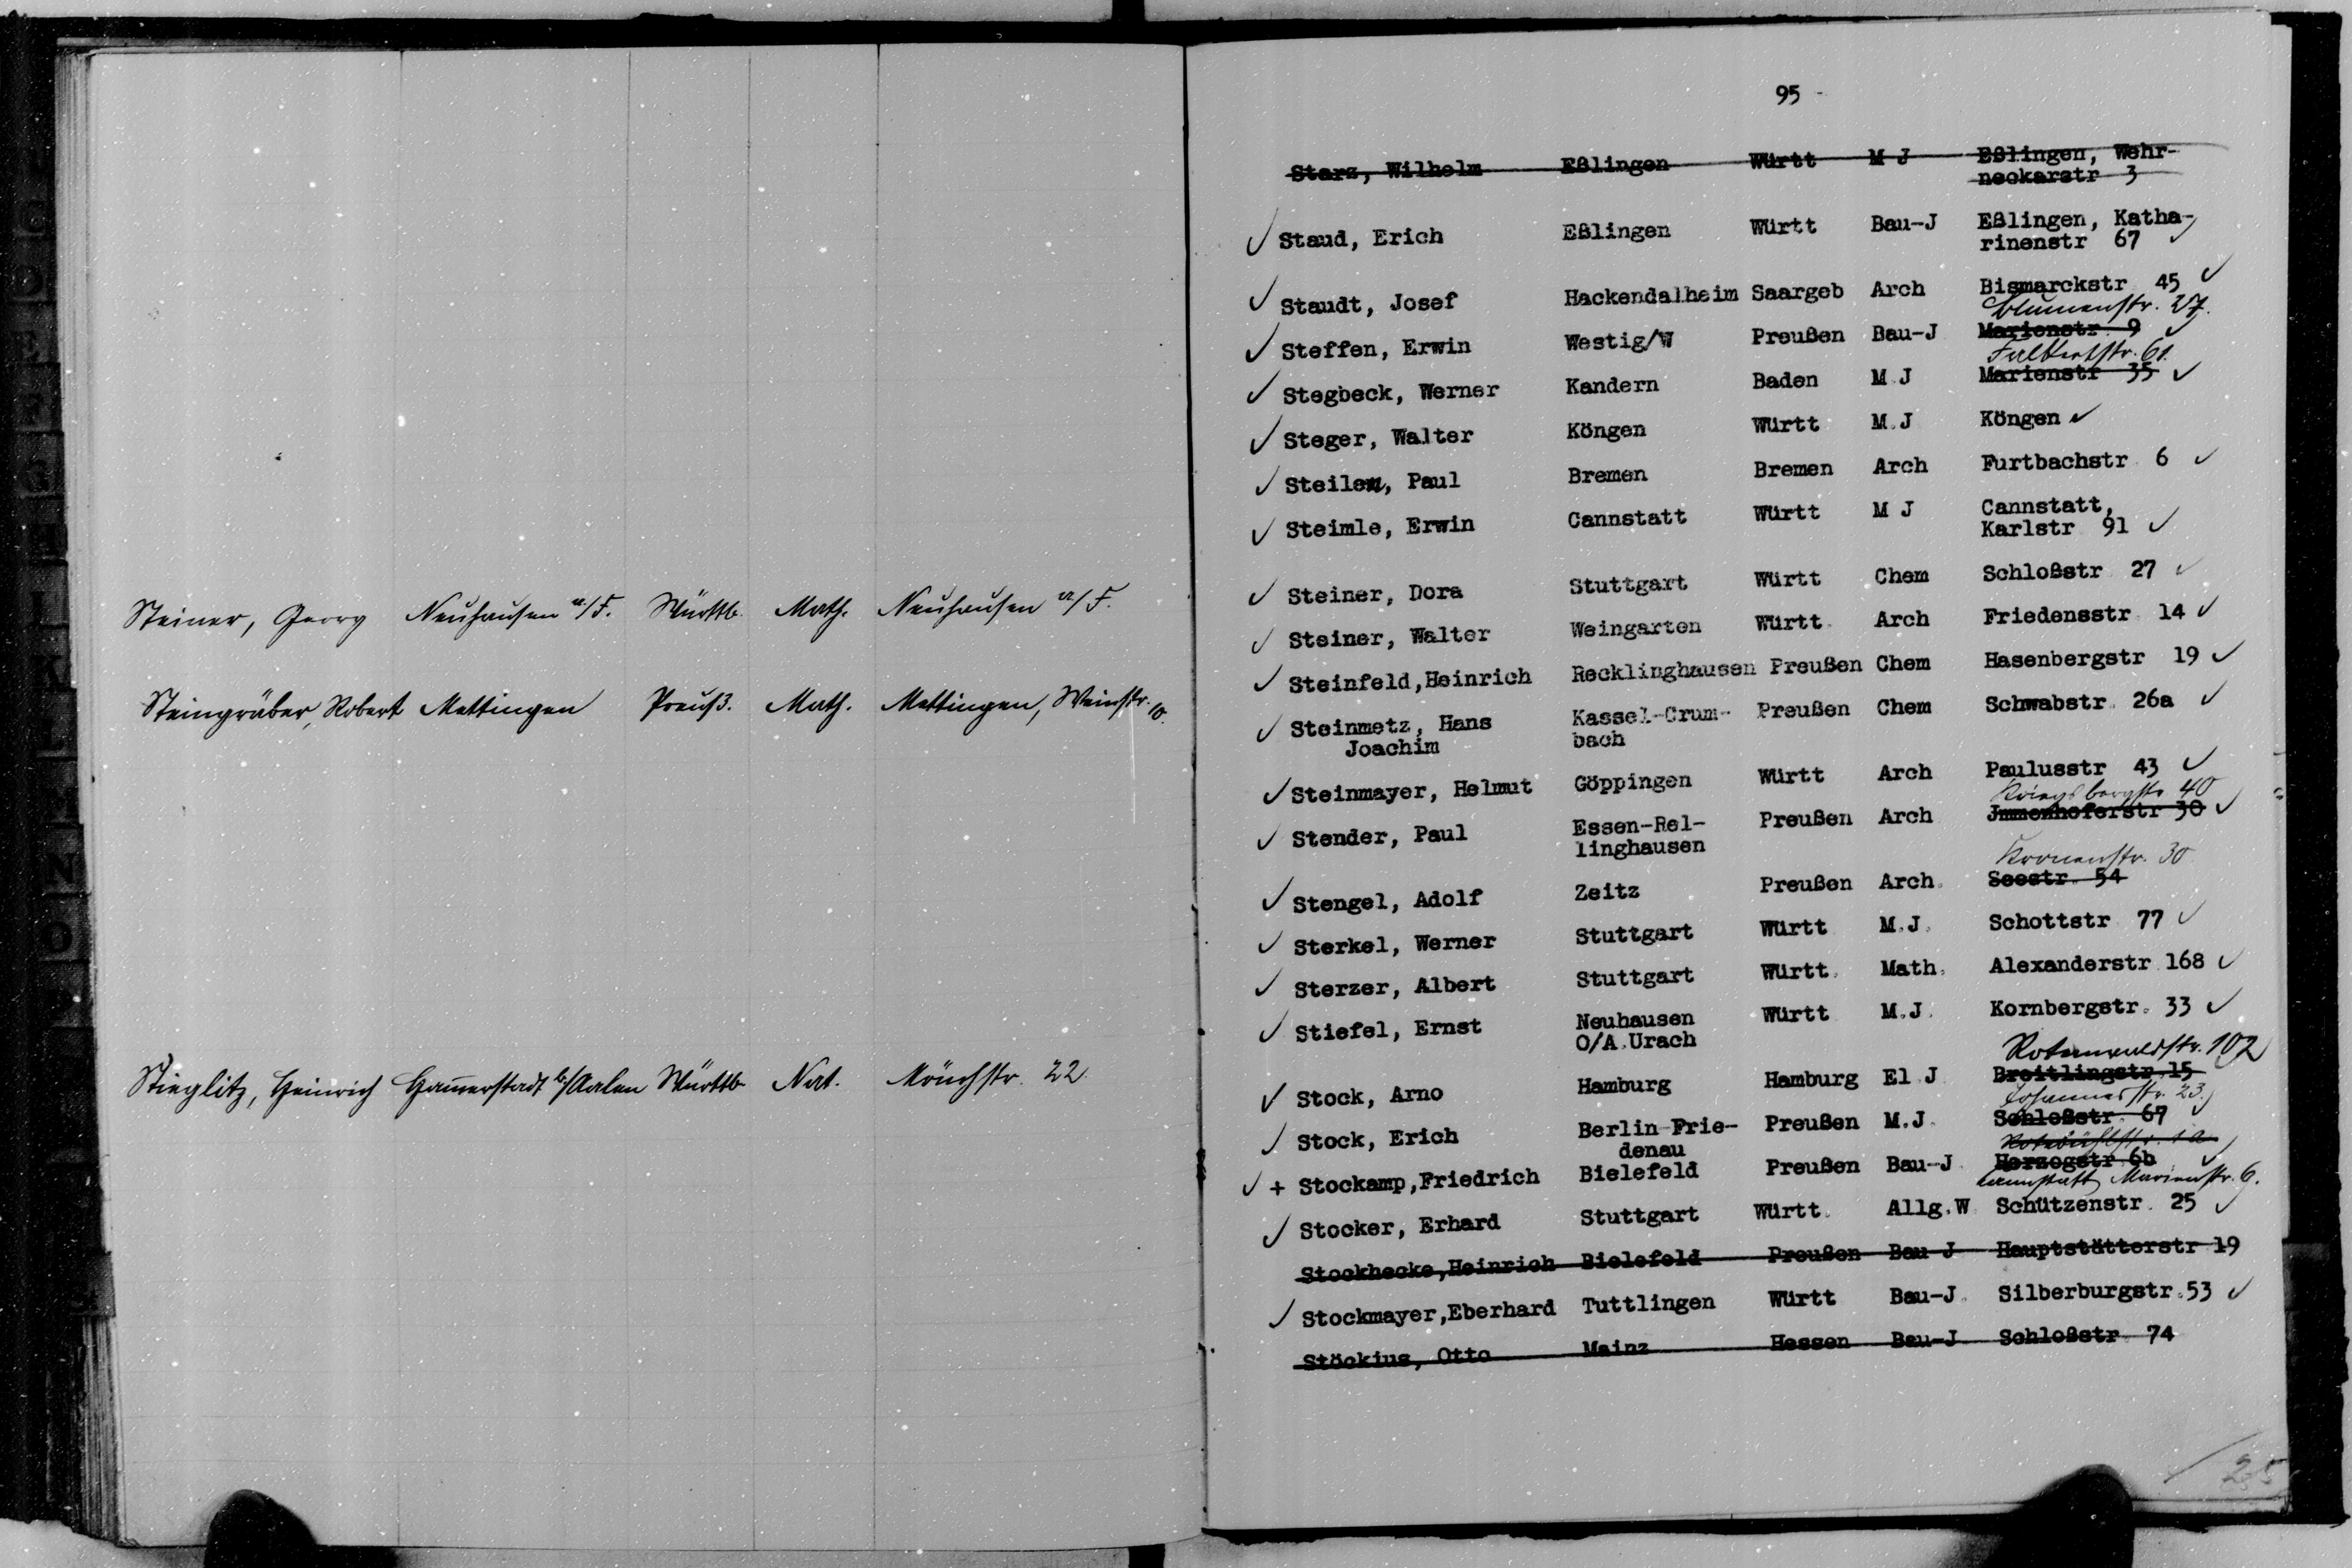 Steiner, Georg Neuhausen a/F. Württb. Math. Neuhausen a/F.
Steingräber, Robert Mettingen Preuß. Math. Mettingen, Weinstr. 10.
Stieglitz, Heinrich Ham̄erstadt b/Aalen Württb. Nat. Mönchstr. 22.
95 -
Starz, Wilhelm Eßlingen Württ M J Eßlingen, Wehr-
neckarstr 3
✓ Staud, Erich Eßlingen Württ Bau-J Eßlingen, Katha-
rinenstr 67 ✓
✓ Staudt, Josef Hackendalheim Saargeb Arch Bismarckstr 45 ✓
Blumenstr. 27.
✓ Steffen, Erwin Westig/W Preußen Bau-J Marienstr 9 ✓
61.
✓ Stegbeck, Werner Kandern Baden M.J Marienstr 35 ✓
✓ Steger, Walter Köngen Württ M.J Köngen ✓
✓ Steilen, Paul Bremen Bremen Arch Furtbachstr 6 ✓
✓ Steimle, Erwin Cannstatt Württ M J Cannstatt,
Karlstr 91 ✓
✓ Steiner, Dora Stuttgart Württ Chem Schloßstr 27 ✓
✓ Steiner, Walter Weingarten Württ. Arch Friedensstr 14 ✓
✓ Steinfeld,Heinrich Recklinghausen Preußen Chem Hasenbergstr 19 ✓
✓ Steinmetz, Hans Kassel-Crum- Preußen Chem Schwabstr. 26a ✓
Joachim bach
✓ Steinmayer, Helmut Göppingen Württ Arch Paulusstr 43 ✓
Kriegsbergstr 40
✓ Stender, Paul Essen-Rel- Preußen Arch Jmmenhoferstr 30 ✓
linghausen
Kronenstr. 30
✓ Stengel, Adolf Zeitz Preußen Arch. Seestr. 54
✓ Sterkel, Werner Stuttgart Württ M.J. Schottstr 77 ✓
✓ Sterzer, Albert Stuttgart Württ. Math. Alexanderstr 168 ✓
✓ Stiefel, Ernst Neuhausen Württ M.J. Kornbergstr. 33 ✓
O/A.Urach
Rotenwaldstr. 102
✓ Stock, Arno Hamburg Hamburg El J Breitlingstr.15
Johannesstr. 23.
✓ Stock, Erich Berlin-Frie- Preußen M.J. Schloßstr. 67 ✓
denau Rotebühlstr. 1a
✓ + Stockamp,Friedrich Bielefeld Preußen Bau-J Herzogstr 6b ✓
Cannstatt Marienstr. 6.
✓ Stocker, Erhard Stuttgart Württ. Allg.W. Schützenstr. 25 ✓
Stockhecke,Heinrich Bielefeld Preußen Bau J Hauptstätterstr 19
✓ Stockmayer,Eberhard Tuttlingen Württ Bau-J. Silberburgstr.53 ✓
Stöckius, Otto Mainz Hessen Bau-J Schloßstr 74
/ 25